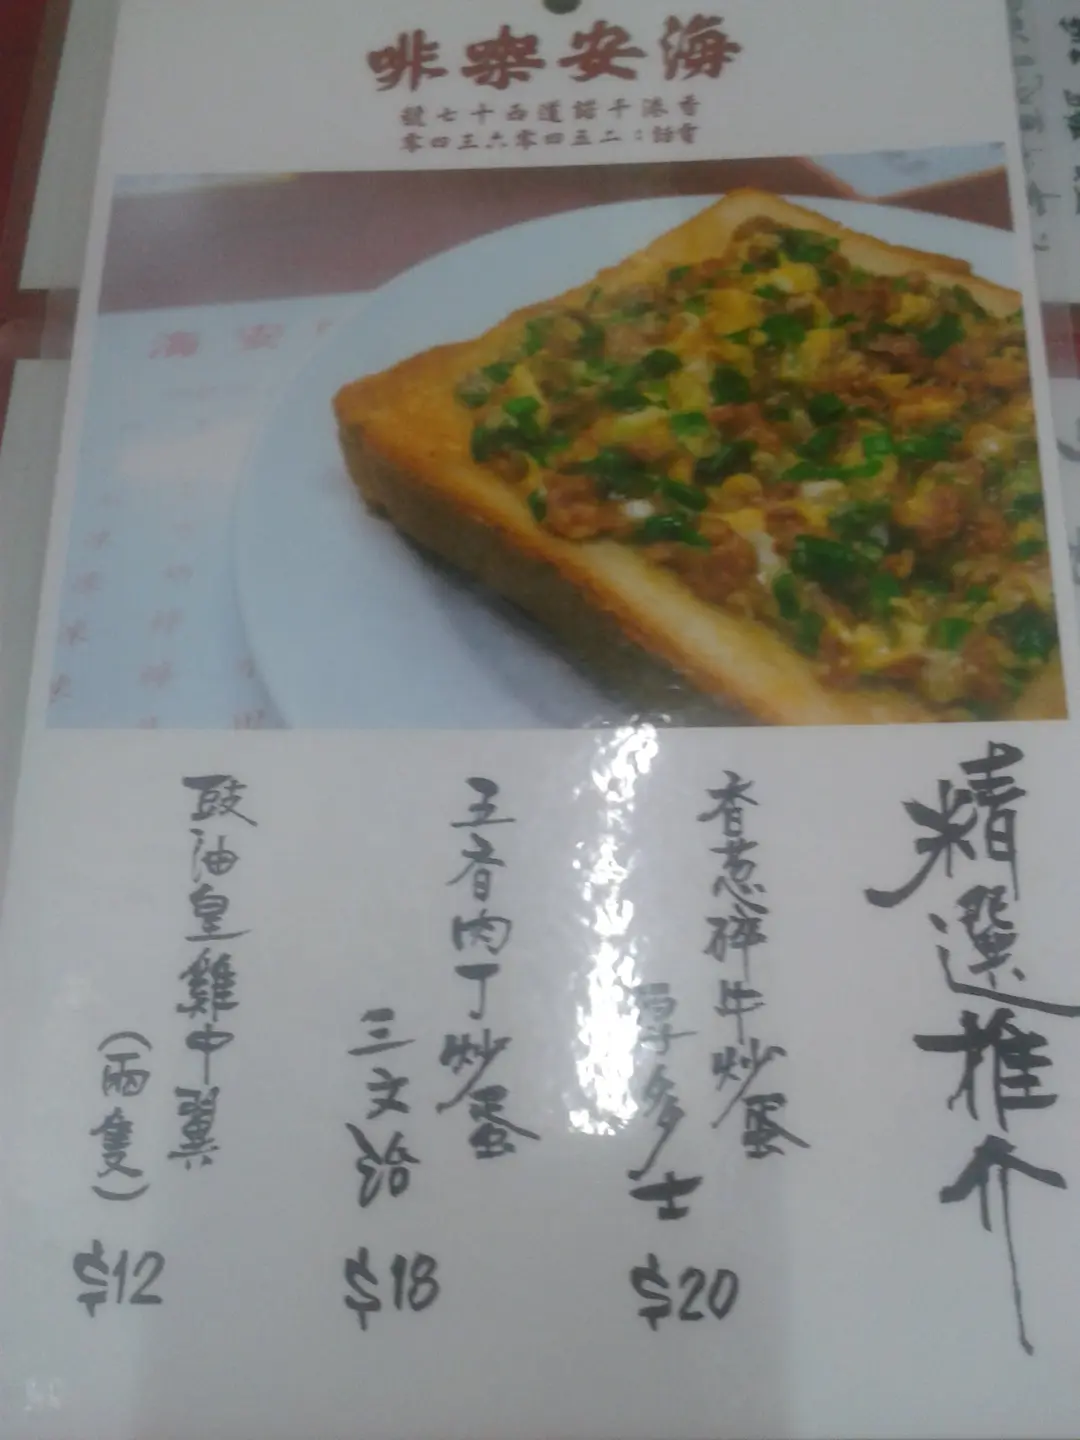 海安咖啡
香港干諾道西十七號
電話：二五四零六三四零
精選推介
香葱碎牛炒蛋
厚多士
$20
五香肉丁炒蛋
三文治
$18
豉油皇雞中翼
(兩隻)
$12
海安